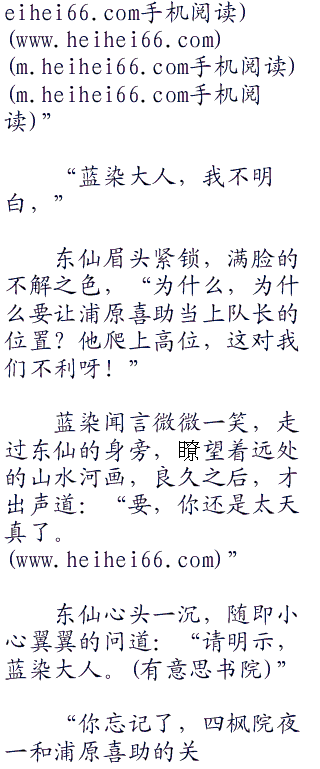 eihei66.com手机阅读)
(www.heihei66.com)
(m.heihei66.com手机阅读)
(m.heihei66.com手机阅
读)”
“蓝染大人，我不明
白，”
东仙眉头紧锁，满脸的
不解之色，“为什么，为什
么要让浦原喜助当上队长的
位置？他爬上高位，这对我
们不利呀！”
蓝染闻言微微一笑，走
过东仙的身旁，瞭望着远处
的山水河画，良久之后，才
出声道：“要，你还是太天
真了。
(www.heihei66.com)”
东仙心头一沉，随即小
心翼翼的问道：“请明示，
蓝染大人。(有意思书院)”
“你忘记了，四枫院夜
一和浦原喜助的关